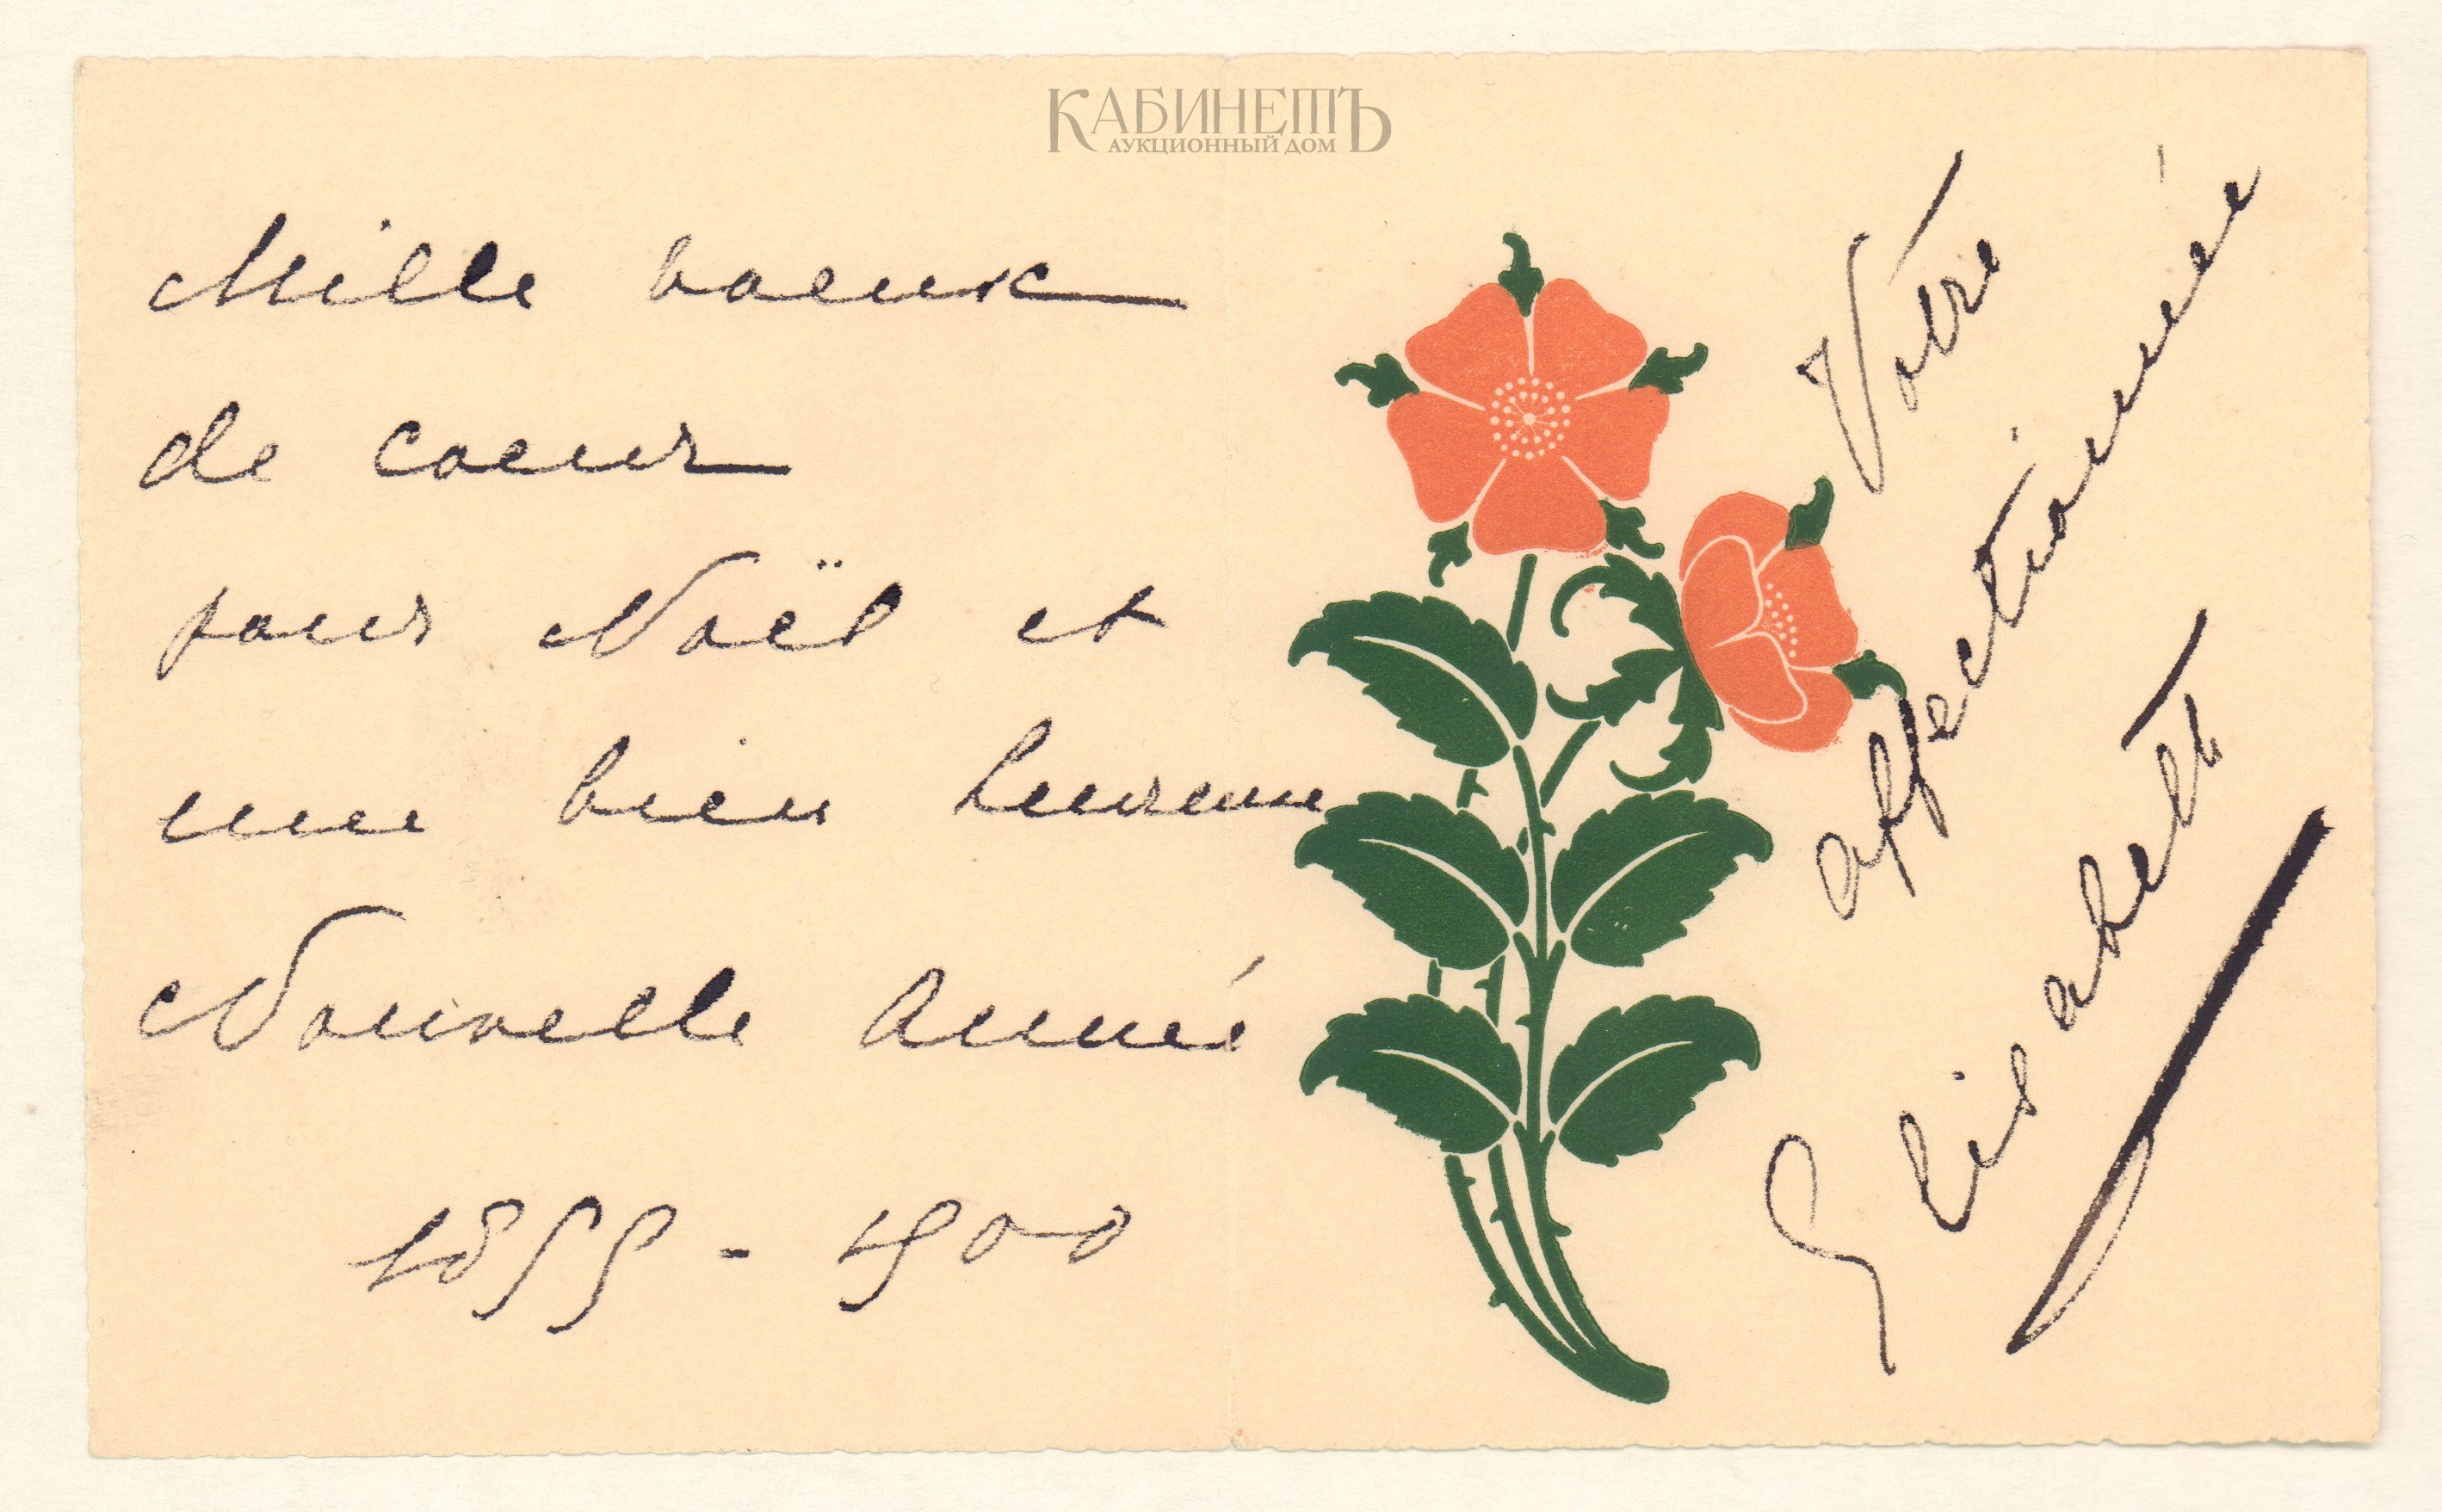 КАБИНЕТЪ
АУКЦИОННЫЙ ДОМ
Mille voeux
de coeur
pour Noël et
une bien heureuse
Nouvelle Année
1899 - 1900
Votre
affectionnée
Elisabeth